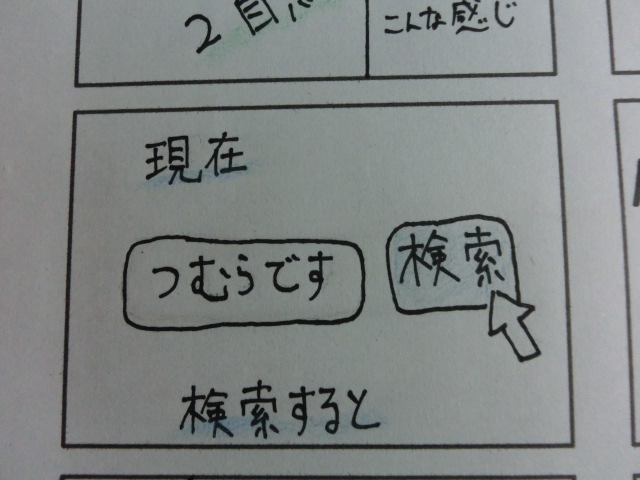 2目
こんな感じ
現在
つむらです
検索
検索すると